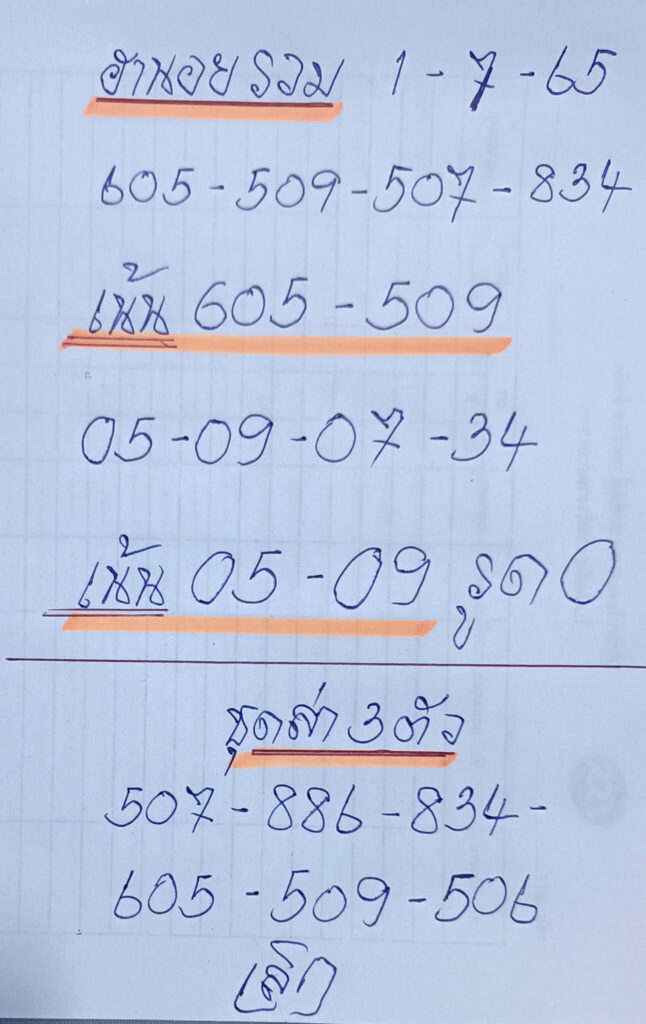 ฮานอยรวม 1-7-65
605-509-507-834
เน้น 605-509
05-09-07-34
เน้น 05-09 รูด 0
ชุดล่า 3 ตัว
507-886-834-
605-509-506